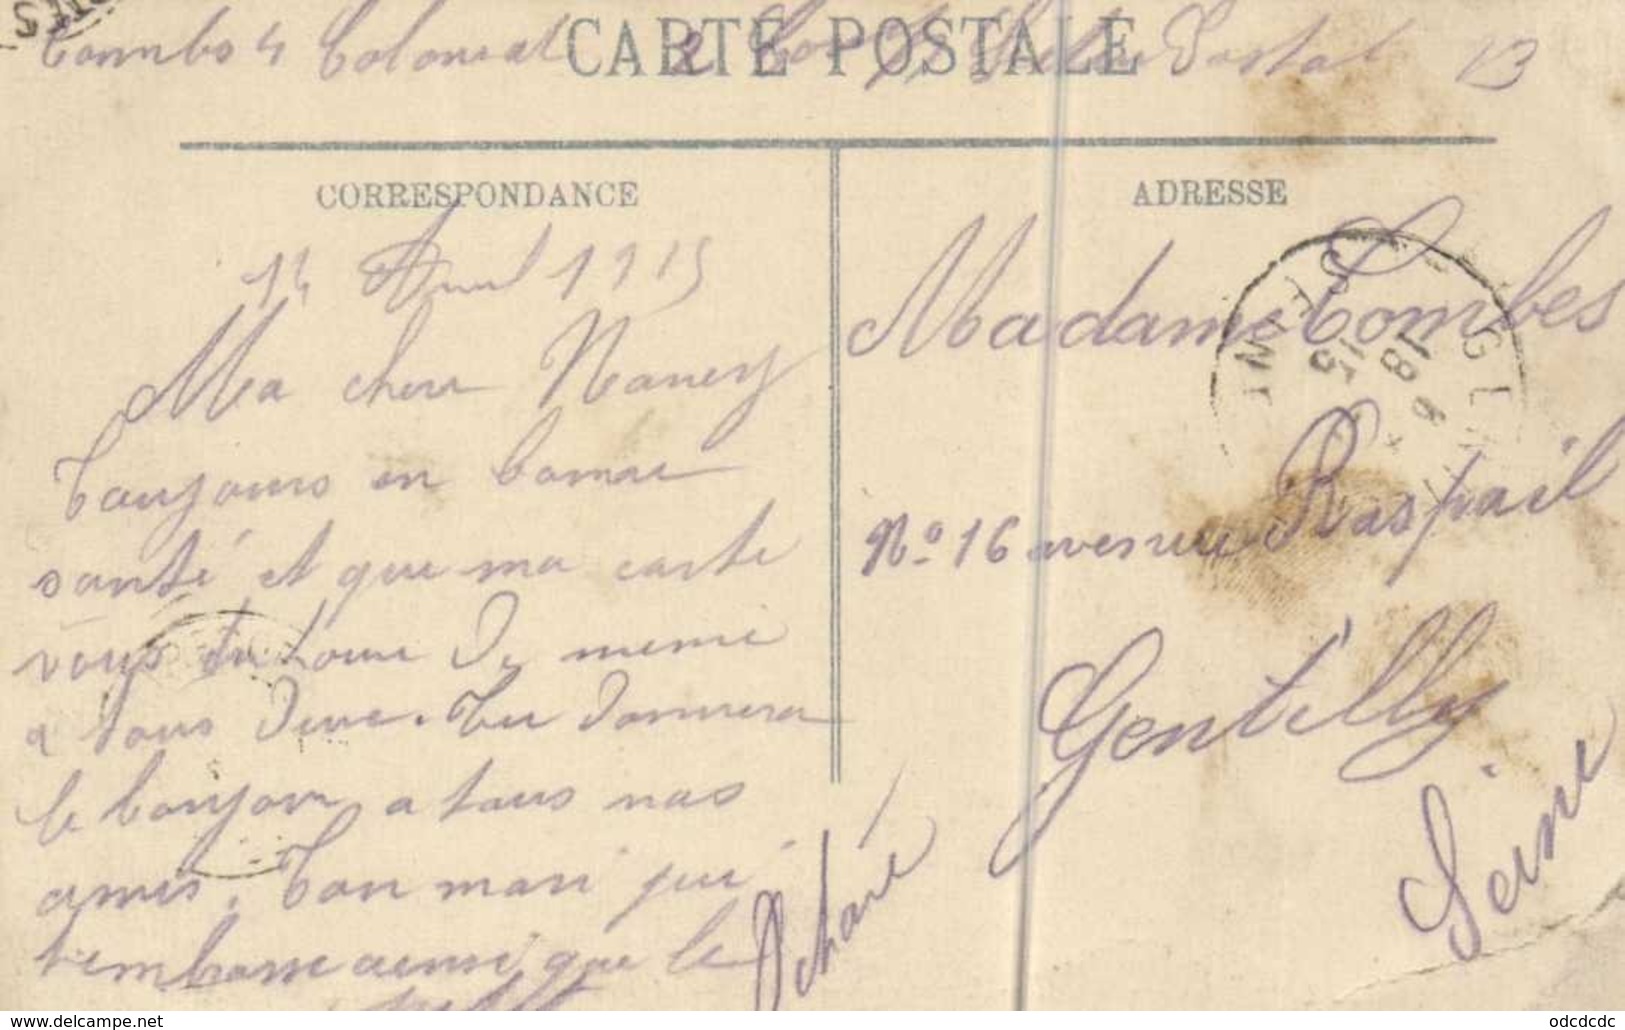 Combes 4 Colonial 2 Postal 13
CARTE POSTALE
CORRESPONDANCE
14 Avril 1915
Ma cher Nancy
Toujours en bonne
santé et que ma carte
vous trouve De meme
a tous Deux. Tu donnera
le bonjour a tous nos
amis. Ton mari qui
t'embrasse ainsi que le
ADRESSE
Madame Combes
No 16 avenue Raspail
Gentilly
Seine
18
15
www.delcampe.net
odcdcdc